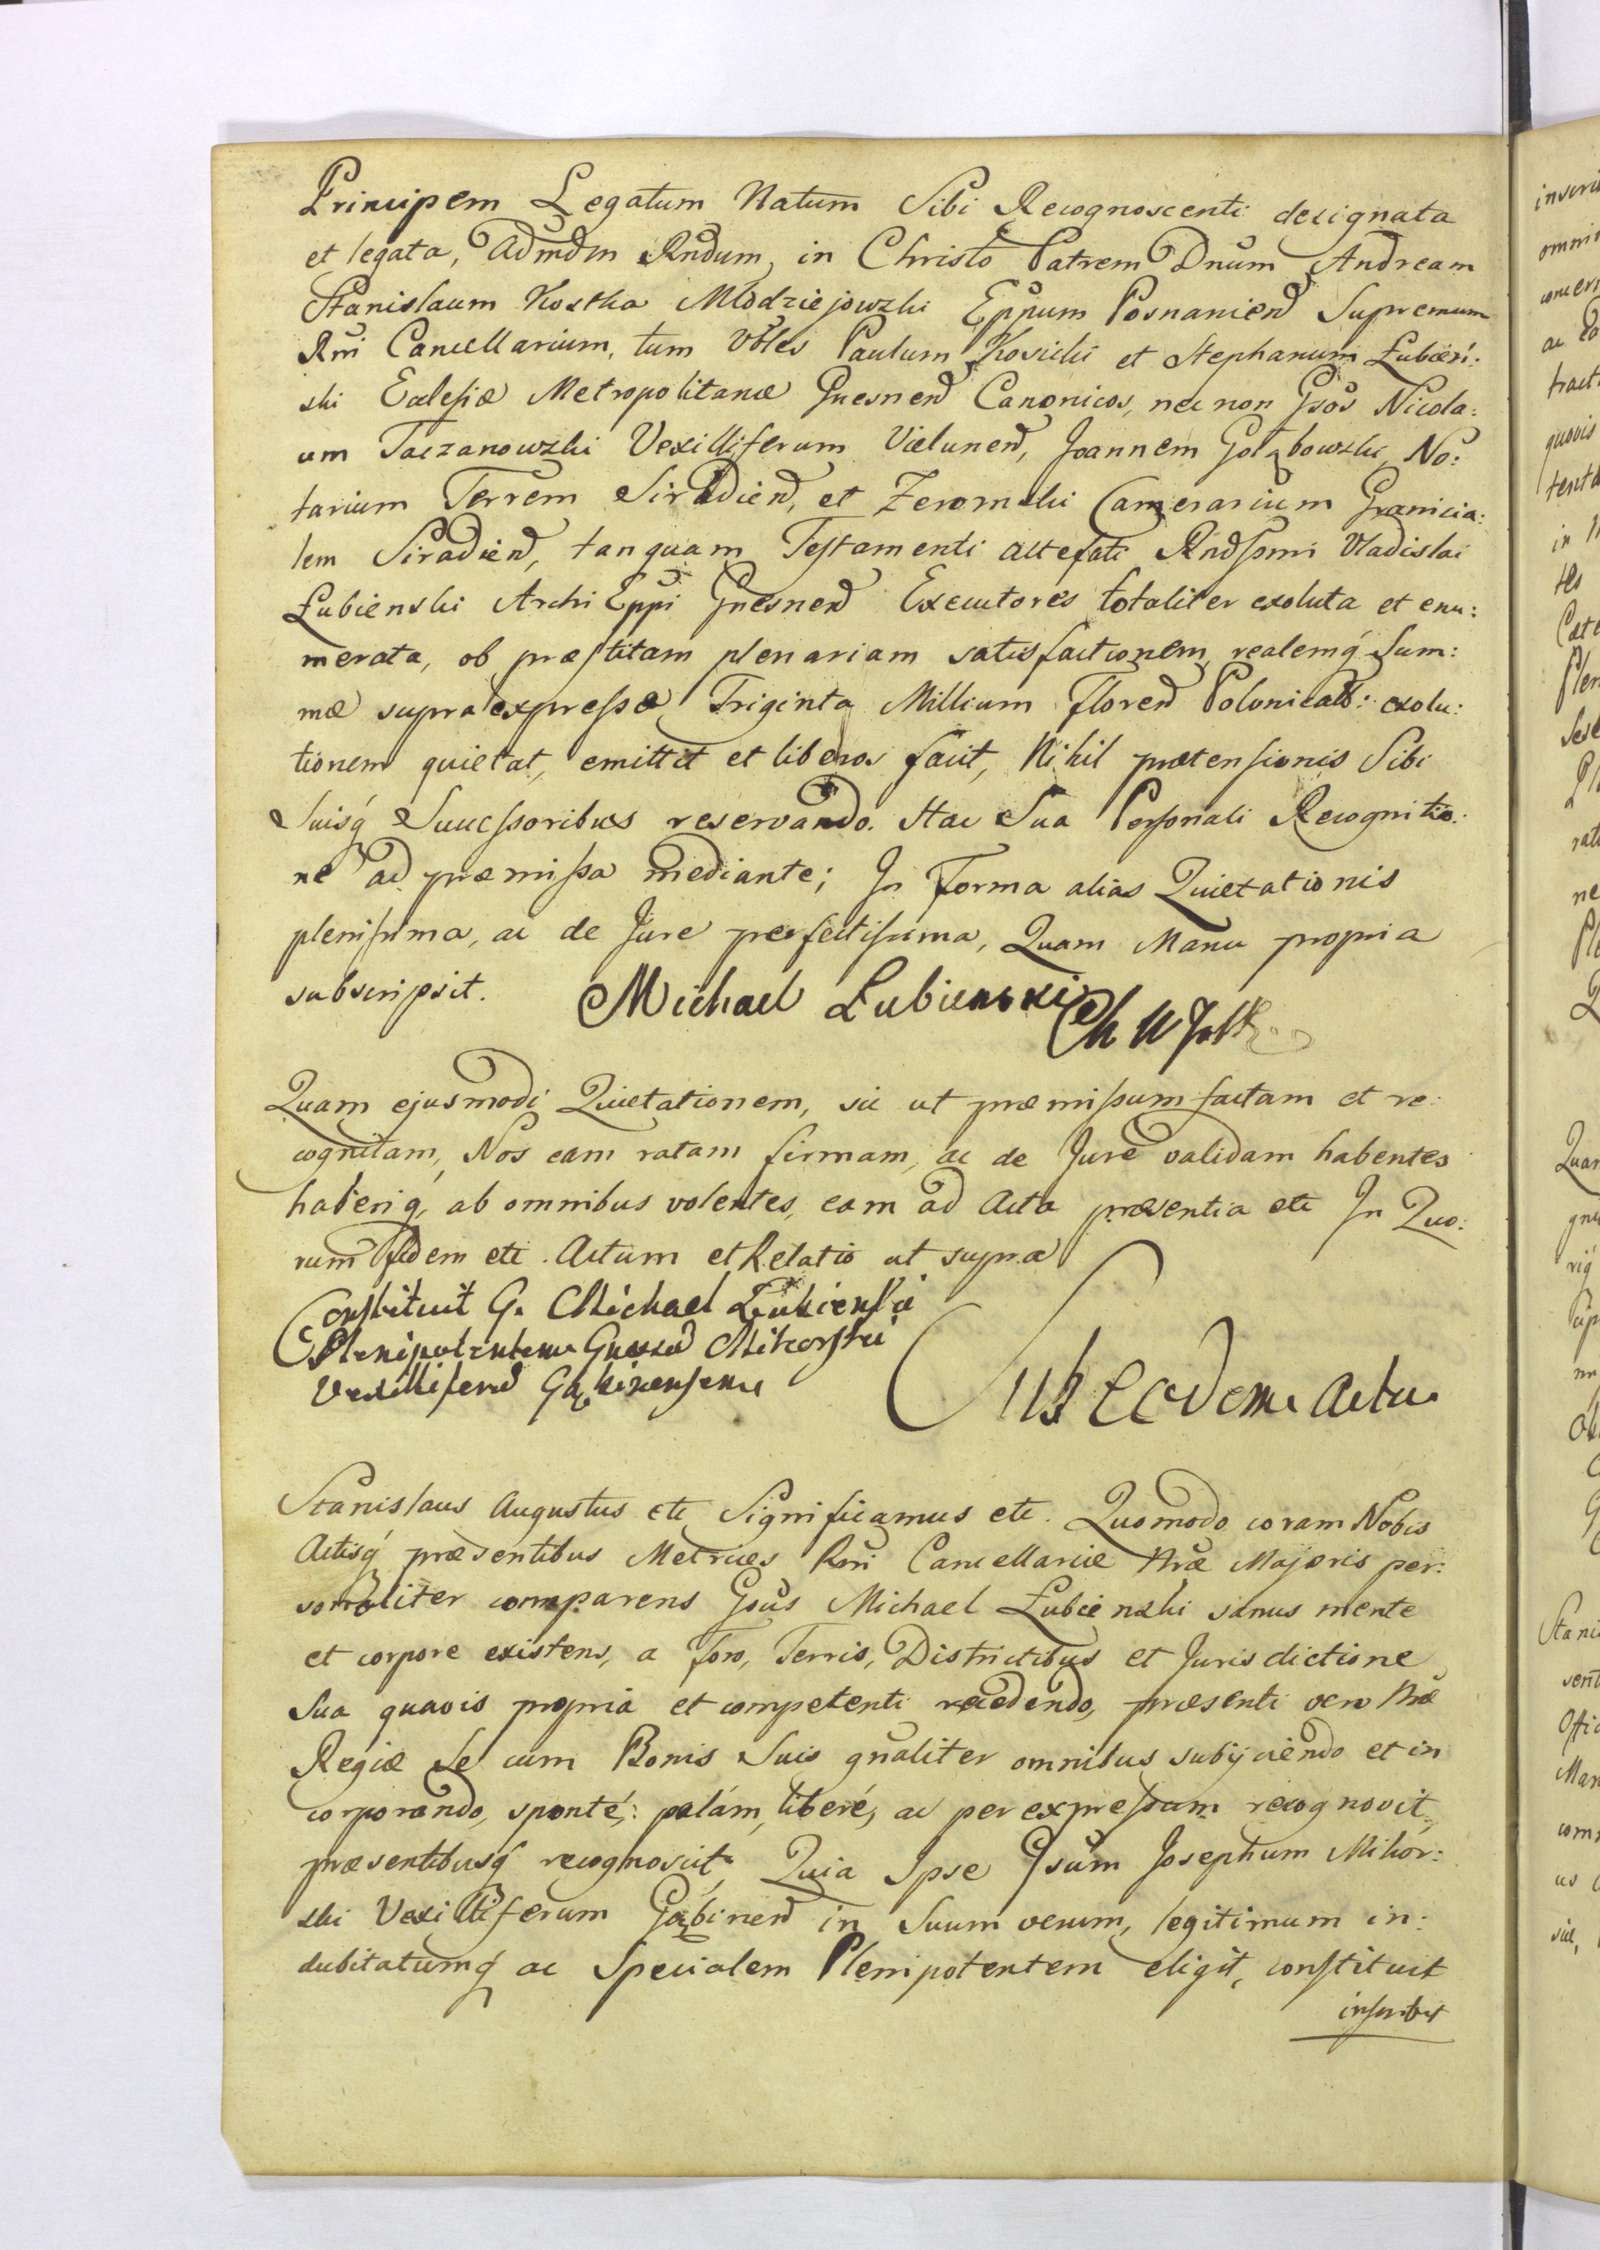 Principem Legatum Natum Sibi Recognoscenti designata
et legata, Admdm Rndum, in Christo Patrem Dnum Andream
Stanislaum Kostka Młodziejowski Eppum Posnanien Supremum
Rni Cancellarium, tum Vbles Paulum Kosicki et Stephanum Łubień:
ski Ecclesiæ Metropolitanæ Gnesnen Canonicos, nec non Gsos Nicola:
um Taczanowski Vexilliferum Vielunen, Joannem Gołąbowski No:
tarium Terrem Siradien, et Zeromski Camerarium Granicia:
lem Siradien, tanquam Testamenti altefati Rndssmi Vladislai
Łubienski Archi Eppi Gnesnen Executores totaliter exoluta et enu:
merata, ob præstitam plenariam satisfactionem, realemq́ Sum:
mæ supra expressæ Triginta Millium Floren Polonicalb: exolu:
tionem quietat, emittit et liberos facit, Nihil prætensionis Sibi
Suisq́ Successoribus reservando. Hac Sua Personali Recognitio:
ne ad præmissa mediante; In Forma alias Quietationis
plenissima, ac de Jure perfectissima, Quam Manu propria
subscripsit. Michael Lubienski
Quam ejusmodi Quietationem, sic ut præmissum factam et re:
cognitam, Nos eam ratam firmam, ac de Jure validam habentes
haberiq́, ab omnibus volentes, eam ad Acta præsentia etc In Quo:
rum fidem etc. Actum et Relatio ut supra
Constituit G. Michael Łubienski
Plenipotentem Gnosum Mikorski
Vexilliferum Gąbinensem
Sub Eodem Actu
Stanislaus Augustus etc Significamus etc. Quomodo coram Nobis
Actisq́ præsentibus Metrices Rni Cancellariæ Nræ Majoris per:
sonaliter comparens Gsus Michael Łubienski sanus mente
et corpore existens, a Foro, Terris, Districtibus et Jurisdictione
Sua quavis propria et competenti recedendo, præsenti vero Nræ
Regiæ Se cum Bonis Suis gnaliter omnibus subijciendo et in
corporando, sponté: palám, liberé, ac per expressum recognovit,
præsentibusq́ recognoscit, Quia Ipse Gsum Josephum Mikor:
ski Vexilliferum Gąbinen in Suum verum, legitimum in:
dubitatumq́ ac Specialem Plenipotentem eligit, constituit
inscribit